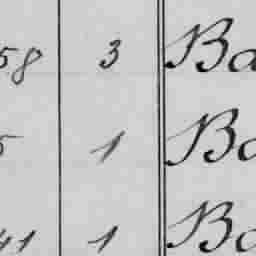 58 3 Ba
5 1 Ba
41 1 Ba